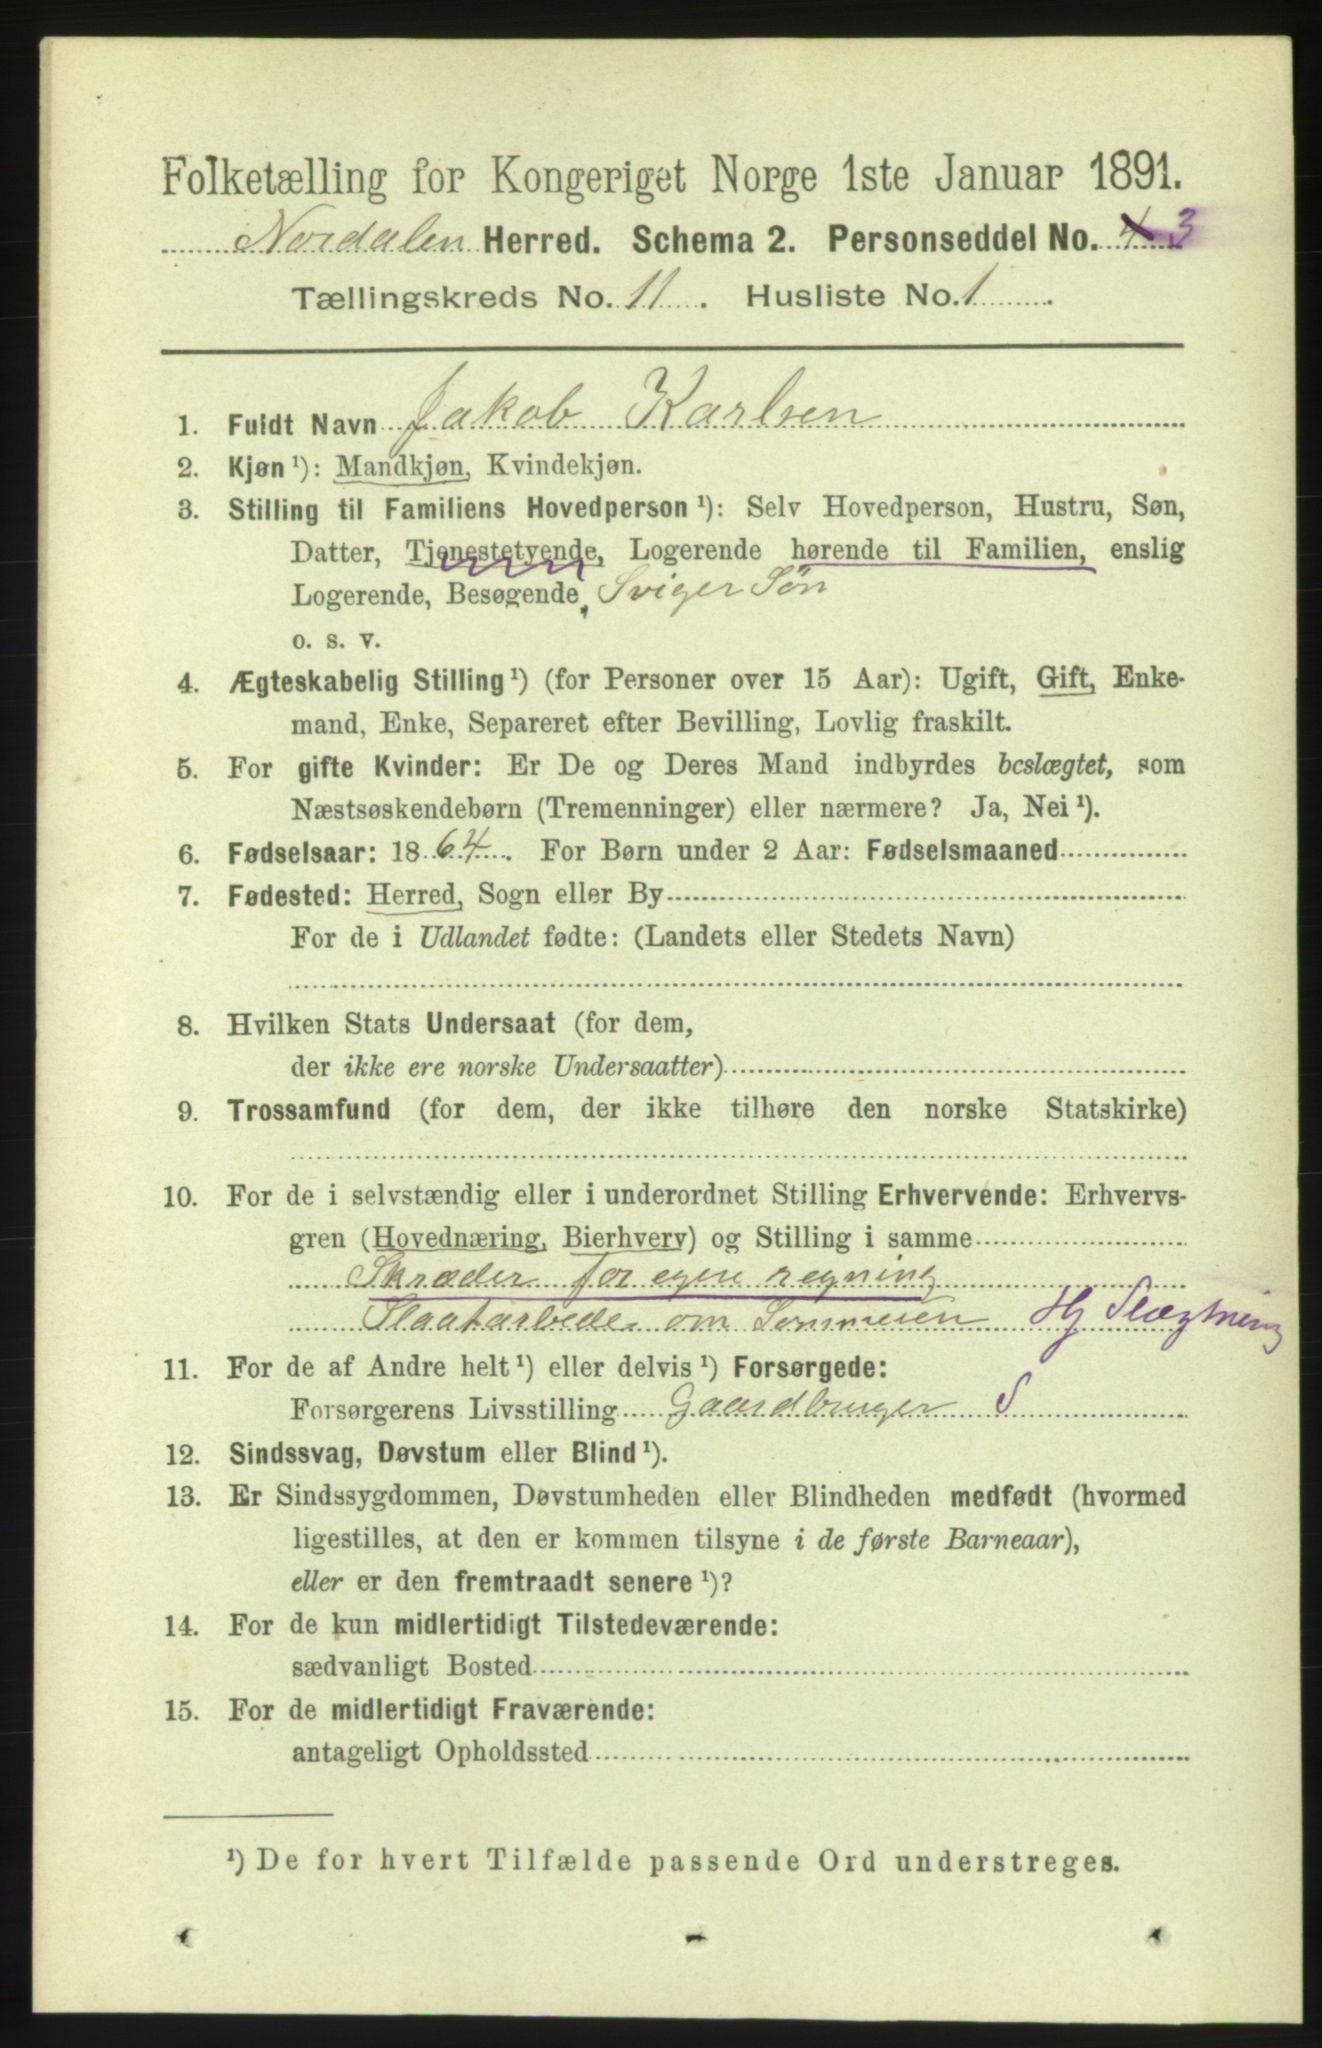 Folketælling for Kongeriget Norge 1ste Januar 1891.
Nordalen Herred. Schema 2. Personseddel No. 4 3
Tællingskreds No. 11. Husliste No. 1.
1. Fuldt Navn Jakob Karlsen
2. Kjøn ¹): Mandkjøn, Kvindekjøn.
3. Stilling til Familiens Hovedperson ¹): Selv Hovedperson, Hustru, Søn,
Datter, Tjenestetyende, Logerende hørende til Familien, enslig
Logerende, Besøgende, Sviger Søn
o. s. v.
4. Ægteskabelig Stilling ¹) (for Personer over 15 Aar): Ugift, Gift, Enke-
mand, Enke, Separeret efter Bevilling, Lovlig fraskilt.
5. For gifte Kvinder: Er De og Deres Mand indbyrdes beslægtet, som
Næstsøskendebørn (Tremenninger) eller nærmere? Ja, Nei ¹).
6. Fødselsaar: 1864. For Børn under 2 Aar: Fødselsmaaned
7. Fødested: Herred, Sogn eller By
For de i Udlandet fødte: (Landets eller Stedets Navn)
8. Hvilken Stats Undersaat (for dem,
der ikke ere norske Undersaatter)
9. Trossamfund (for dem, der ikke tilhøre den norske Statskirke)
10. For de i selvstændig eller i underordnet Stilling Erhvervende: Erhvervs-
gren (Hovednæring, Bierhverv) og Stilling i samme
Skræder for egen regning
om Sommeren Hj Slægtning
11. For de af Andre helt ¹) eller delvis ¹) Forsørgede:
Forsørgerens Livsstilling Gaardbruger S
12. Sindssvag, Døvstum eller Blind ¹).
13. Er Sindssygdommen, Døvstumheden eller Blindheden medfødt (hvormed
ligestilles, at den er kommen tilsyne i de første Barneaar),
eller er den fremtraadt senere ¹)?
14. For de kun midlertidigt Tilstedeværende:
sædvanligt Bosted
15. For de midlertidigt Fraværende:
antageligt Opholdssted
¹) De for hvert Tilfælde passende Ord understreges.